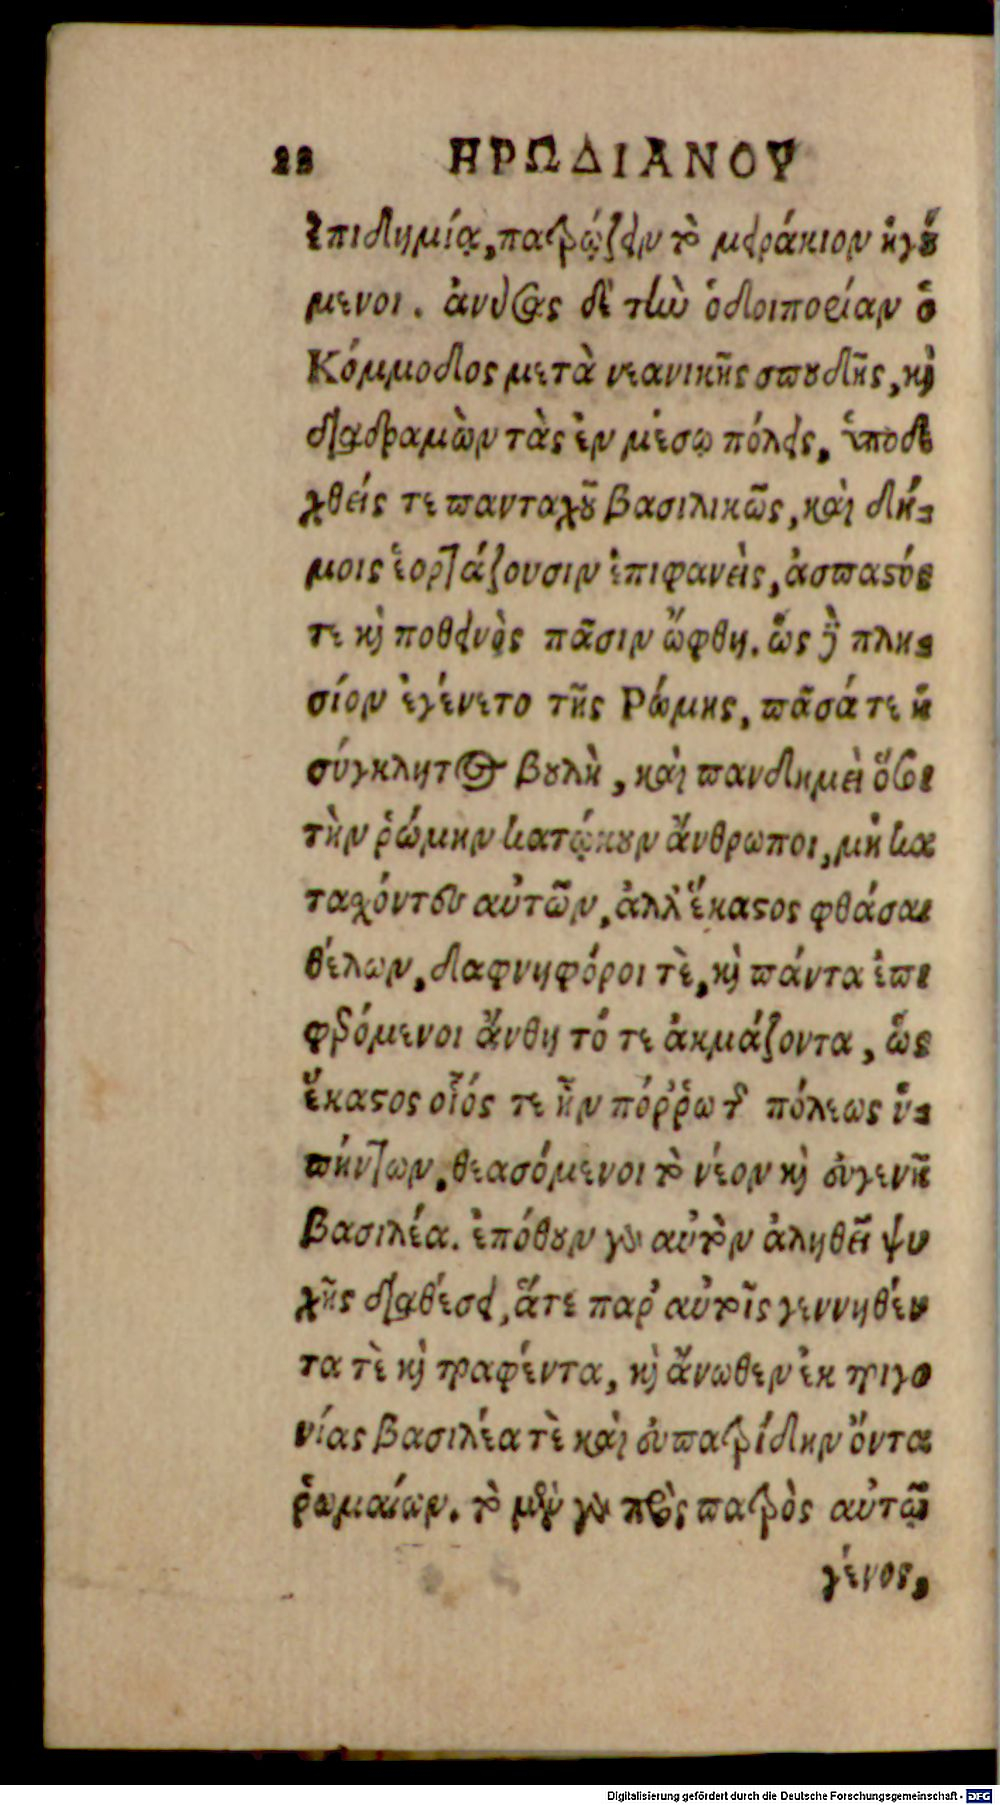 22 ΗΡΩΔΙΑΝΟΥ
ἐπιδημίᾳ, πατρῴζειν τὸ μειράκιον ἡγού
μενοι. ἀνύσας δὲ τὴν ὁδοιπορίαν ὁ
Κόμμοδος μετὰ νεανικῆς σπουδῆς, καὶ
διαδραμὼν τὰς ἐν μέσῳ πόλεις, ὑποδε
χθείς τε πανταχοῦ βασιλικῶς, καὶ δή-
μοις ἑορτάζουσιν ἐπιφανεὶς, ἀσπαστός
τε καὶ ποθεινὸς πᾶσιν ὤφθη. ὡς δὲ πλη-
σίον ἐγένετο τῆς Ρώμης, πᾶσά τε ἡ
σύγκλητος βουλὴ, καὶ πανδημεὶ ὅσοι
τὴν ῥώμην κατῴκουν ἄνθρωποι, μὴ κα
ταχόντων αὐτῶν, ἀλλ' ἕκαστος φθάσαι
θέλων, δαφνηφόροι τὲ, καὶ πάντα ἐπι
φερόμενοι ἄνθη τό τε ἀκμάζοντα, ὡς
ἕκαστος οἷός τε ἦν πόῤῥω τῆς πόλεως ὑ-
πήντων, θεασόμενοι τὸ νέον καὶ εὐγενῆ
βασιλέα. ἐπόθουν γὰρ αὐτὸν ἀληθεῖ ψυ
χῆς διαθέσει, ἅτε παρ' αὐτοῖς γεννηθέν
τα τὲ καὶ τραφέντα, καὶ ἄνωθεν ἐκ τριγο
νίας βασιλέα τὲ καὶ εὐπατρίδην ὄντα
ῥωμαίων. τὸ μὲν γὰρ πρὸς πατρὸς αὐτῷ
γένος,
Digitalisierung gefördert durch die Deutsche Forschungsgemeinschaft - DFG